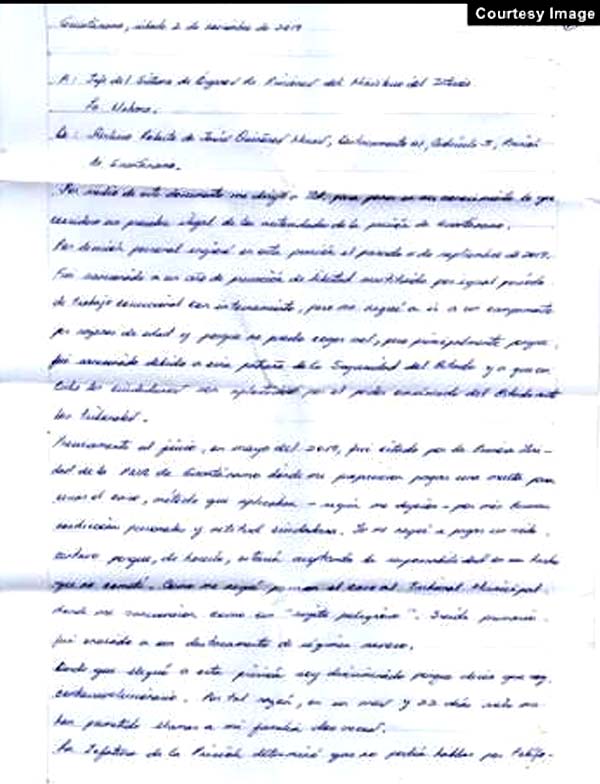 Courtesy Image
Guantánamo, sábado 2 de noviembre de 2019
A: Jefe del Sistema de Órganos de Prisiones del Ministerio del Interior
La Habana.
De: Roberto de Jesús Quiñones Haces, Destacamento, Cubículo, Prisión
de Guantánamo.
Por medio de este documento me dirijo a Ud. para poner en su conocimiento lo que
considero un proceder ilegal de las autoridades de la prisión de Guantánamo.
Por decisión personal ingresé en esta prisión el pasado 11 de septiembre de 2019.
Fui sancionado a un año de privación de libertad sustituido por igual período
de trabajo correccional con internamiento, pero me negué a ir a un campamento
por razones de edad y porque no puedo coger sol, pero principalmente porque
fui sancionado debido a una patraña de la Seguridad del Estado y a que en
Cuba los ciudadanos son por el poder del Estado ante
los Tribunales.
Previamente al juicio, en mayo del 2019, fui citado por la Primera Uni-
dad de la PNR de Guantánamo donde me propusieron pagar una multa para
cerrar el caso, método que aplicaban - según me dijeron - por mis buenas
condiciones personales y actitud ciudadana. Yo me negué a pagar un solo
centavo porque, de hacerlo, estaría aceptando la responsabilidad en un hecho
que no cometí. Como me negué pasaron el caso al Tribunal Municipal
donde me sancionaron como un "sujeto peligroso". Siendo primario
fui enviado a un destacamento de régimen severo.
Desde que llegué a esta prisión soy discriminado porque dicen que soy
contrarrevolucionario. Por tal razón, en un mes y 22 días solo me
han permitido llamar a mi familia dos veces.
La Jefatura de la Prisión determinó que no podía hablar por teléfo-